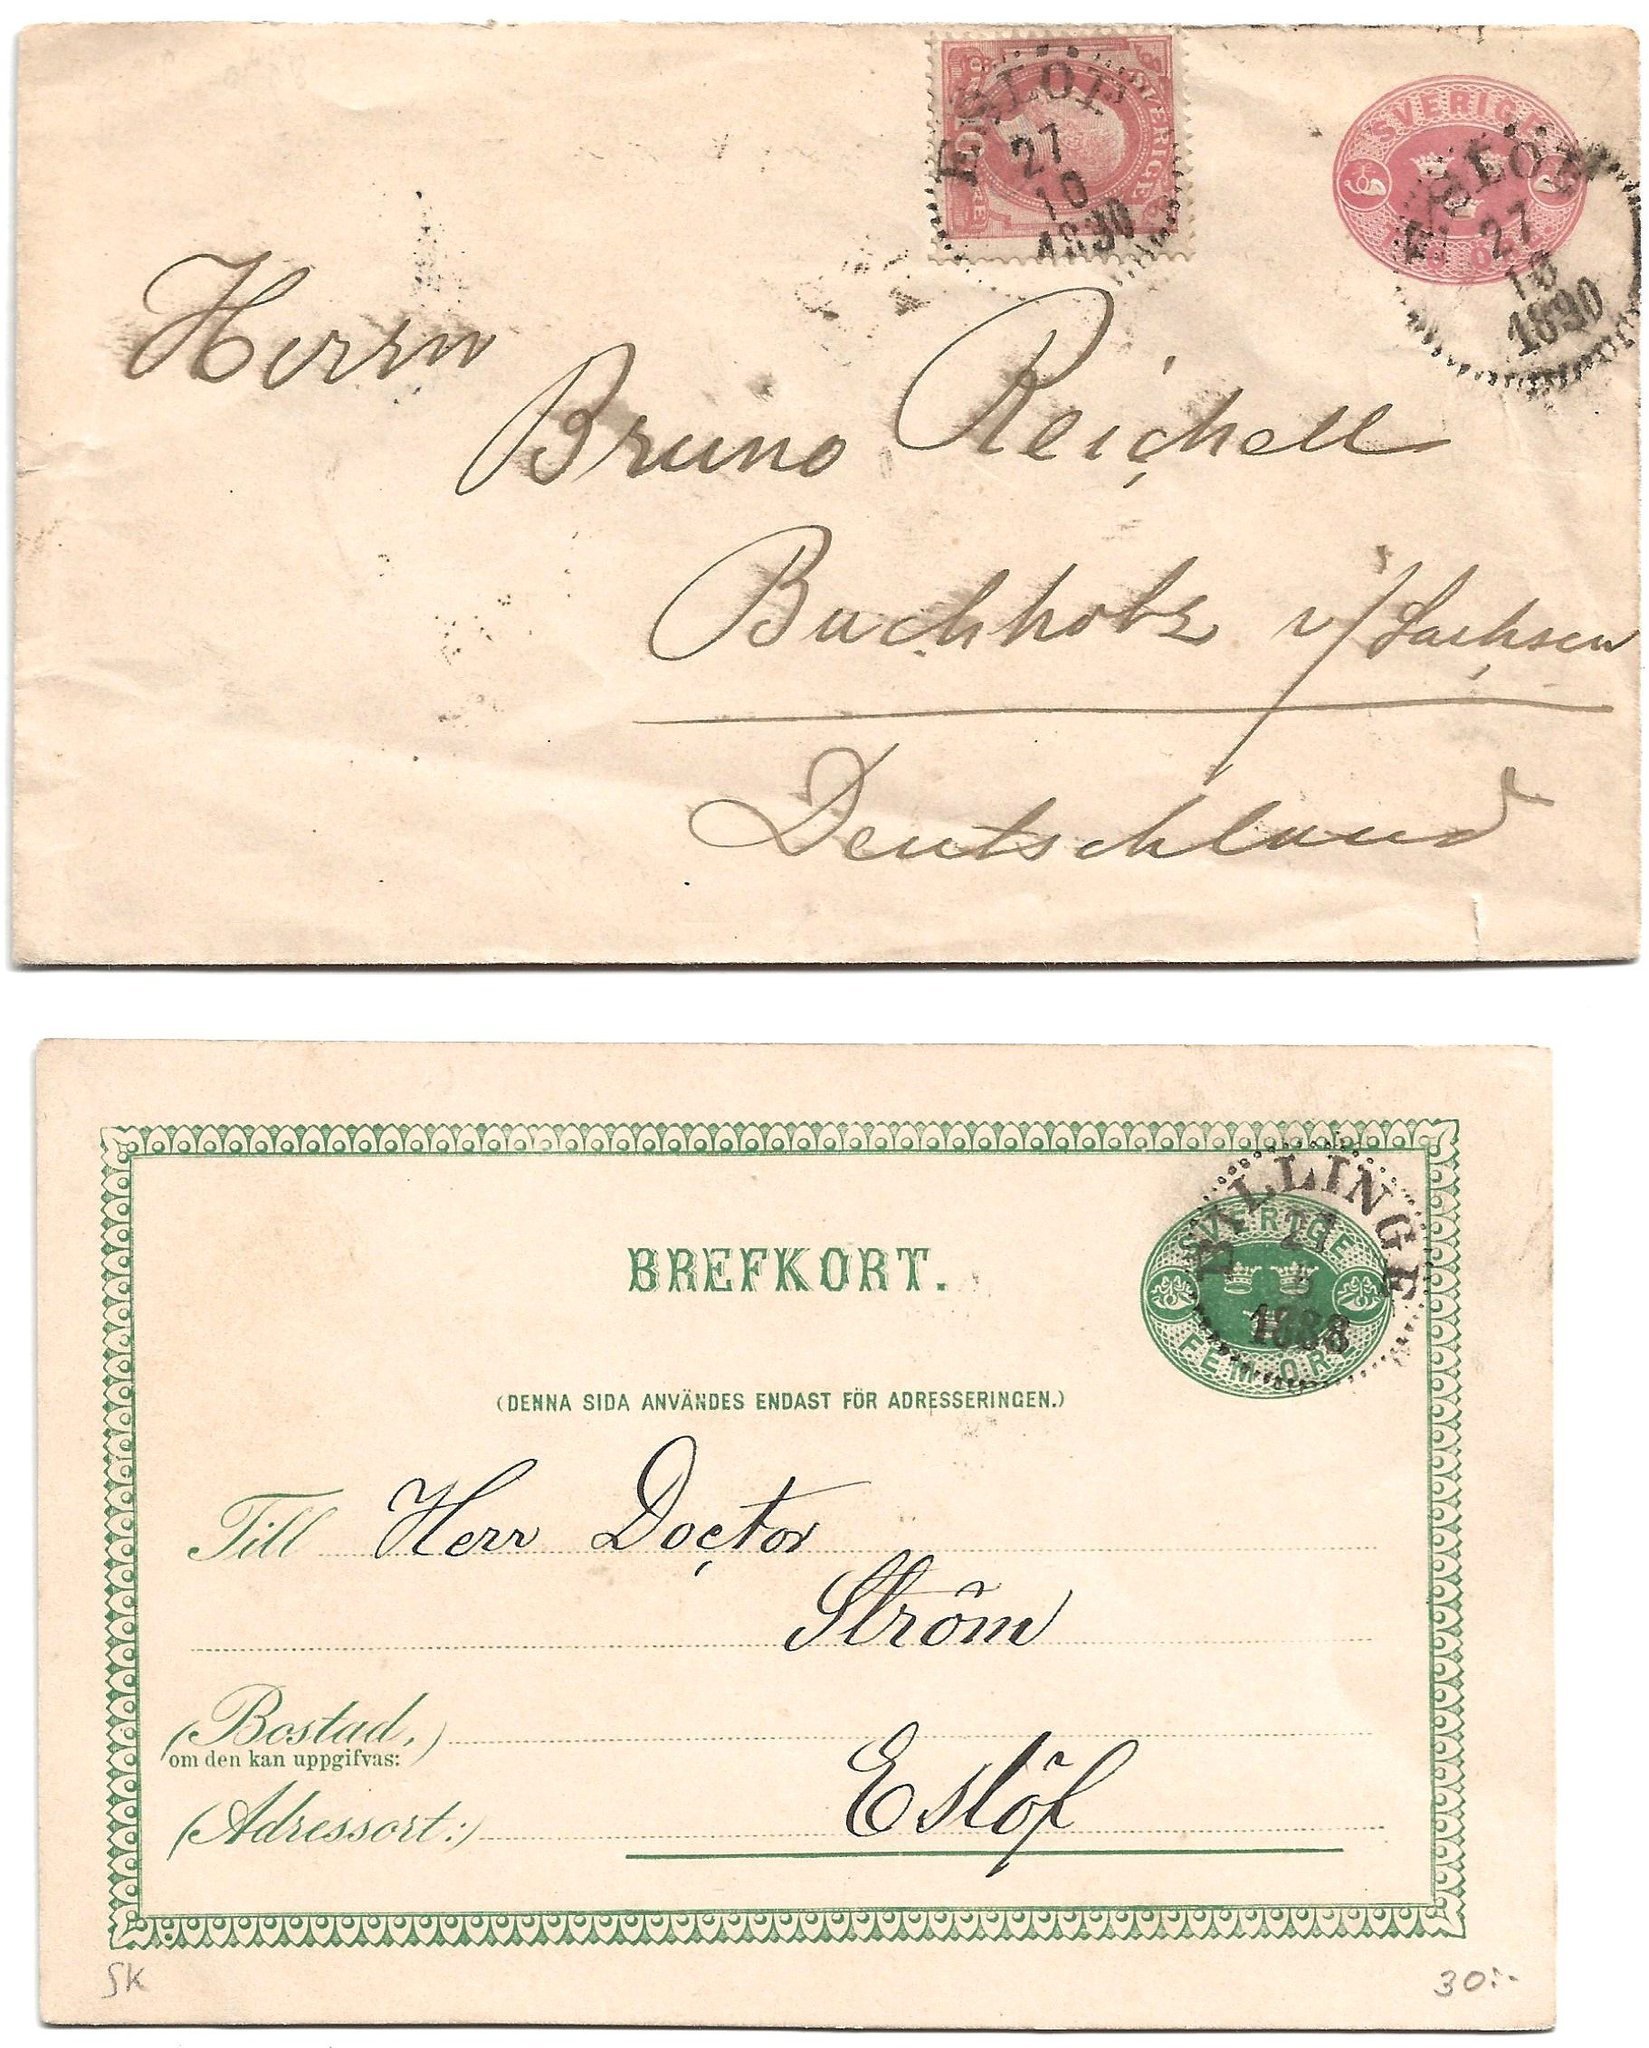 SVERIGE
ESLÖF
27
10
1890
SVERIGE
ESLÖF
27
10
1890
Herrn
Bruno Reichell
Buchholz i/Sachsen
Deutschland
BILLINGE
21
1888
SVERIGE
FEM ÖRE
BREFKORT.
(DENNA SIDA ANVÄNDES ENDAST FÖR ADRESSERINGEN.)
Till Herr Doctor
Ström
(Bostad,)
om den kan uppgifvas:
Eslöf
(Adressort:)
SK
30:-